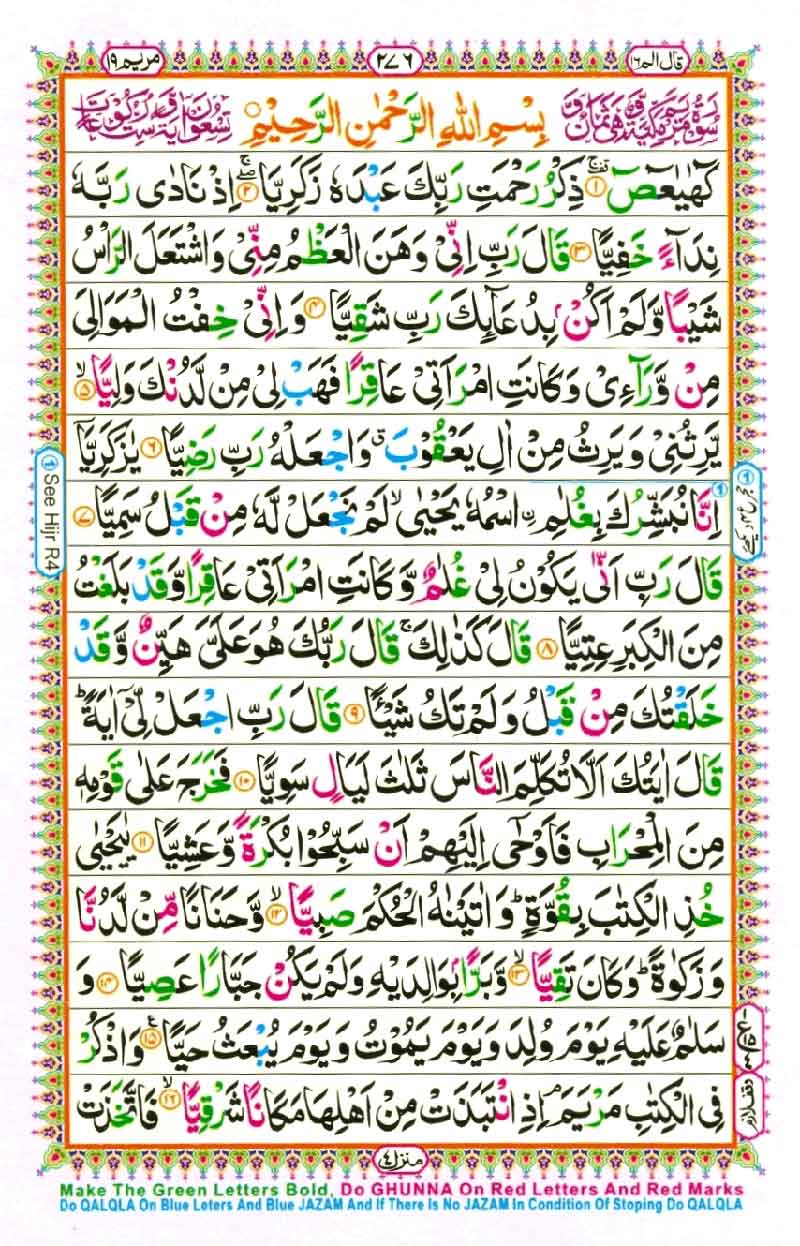 مريم ١٩
٢٧٦
قال الم ١٦
سُوْرَةُ مَرْيَمَ مَكِّيَّةٌ وَّهِىَ ثَمَانٌ وَّ
بِسْمِ اللّٰهِ الرَّحْمٰنِ الرَّحِيْمِ
تِسْعُوْنَ اٰيَةً وَّسِتُّ رُكُوْعَاتٍ
كٓهٰيٰعٓصٓ ۝١ ذِكْرُ رَحْمَتِ رَبِّكَ عَبْدَهٗ زَكَرِيَّا ۝٢ اِذْ نَادٰى رَبَّهٗ
نِدَآءً خَفِيًّا ۝٣ قَالَ رَبِّ اِنِّىْ وَهَنَ الْعَظْمُ مِنِّىْ وَاشْتَعَلَ الرَّاْسُ
شَيْبًا وَّلَمْ اَكُنْۢ بِدُعَآئِكَ رَبِّ شَقِيًّا ۝٤ وَاِنِّىْ خِفْتُ الْمَوَالِىَ
مِنْ وَّرَآءِىْ وَكَانَتِ امْرَاَتِىْ عَاقِرًا فَهَبْ لِىْ مِنْ لَّدُنْكَ وَلِيًّا ۝٥
يَّرِثُنِىْ وَيَرِثُ مِنْ اٰلِ يَعْقُوْبَ ۖ وَاجْعَلْهُ رَبِّ رَضِيًّا ۝٦ يٰزَكَرِيَّآ
اِنَّا نُبَشِّرُكَ بِغُلٰمِ ۨ اسْمُهٗ يَحْيٰىۙ لَمْ نَجْعَلْ لَّهٗ مِنْ قَبْلُ سَمِيًّا ۝٧
قَالَ رَبِّ اَنّٰى يَكُوْنُ لِىْ غُلٰمٌ وَّكَانَتِ امْرَاَتِىْ عَاقِرًا وَّقَدْ بَلَغْتُ
مِنَ الْكِبَرِ عِتِيًّا ۝٨ قَالَ كَذٰلِكَ ۚ قَالَ رَبُّكَ هُوَ عَلَىَّ هَيِّنٌ وَّقَدْ
خَلَقْتُكَ مِنْ قَبْلُ وَلَمْ تَكُ شَيْـًٔا ۝٩ قَالَ رَبِّ اجْعَلْ لِّىْٓ اٰيَةً ؕ
قَالَ اٰيَتُكَ اَلَّا تُكَلِّمَ النَّاسَ ثَلٰثَ لَيَالٍ سَوِيًّا ۝١٠ فَخَرَجَ عَلٰى قَوْمِهٖ
مِنَ الْمِحْرَابِ فَاَوْحٰٓى اِلَيْهِمْ اَنْ سَبِّحُوْا بُكْرَةً وَّعَشِيًّا ۝١١ يٰيَحْيٰى
خُذِ الْكِتٰبَ بِقُوَّةٍ ؕ وَاٰتَيْنٰهُ الْحُكْمَ صَبِيًّا ۝١٢ وَّحَنَانًا مِّنْ لَّدُنَّا
وَزَكٰوةً ؕ وَكَانَ تَقِيًّا ۝١٣ وَّبَرًّۢا بِوَالِدَيْهِ وَلَمْ يَكُنْ جَبَّارًا عَصِيًّا ۝١٤ وَ
سَلٰمٌ عَلَيْهِ يَوْمَ وُلِدَ وَيَوْمَ يَمُوْتُ وَيَوْمَ يُبْعَثُ حَيًّا ۝١٥ وَاذْكُرْ
فِى الْكِتٰبِ مَرْيَمَ ۘ اِذِ انْتَبَذَتْ مِنْ اَهْلِهَا مَكَانًا شَرْقِيًّا ۝١٦ فَاتَّخَذَتْ
See Hijr R4
وقف لازم
منزل ٤
Make The Green Letters Bold, Do GHUNNA On Red Letters And Red Marks
Do QALQLA On Blue Leters And Blue JAZAM And If There Is No JAZAM In Condition Of Stoping Do QALQLA